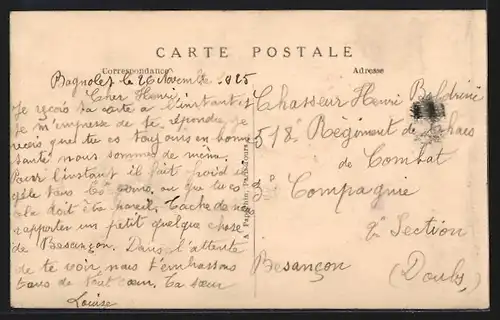 CARTE POSTALE
Correspondance
Adresse
Bagnolet le 26 Novembre 1925
Cher Henri
Je reçois ta carte a l'instant et
je m'empresse de te répondre je
vois que tu es toujours en bonne
santé nous sommes de même.
Pour l'instant il fait froid il
gèle tous les jours, ou que tu es
cela doit être pareil. Tache de nous
rapporter un petit quelque chose
de Besançon. Dans l'attente
de te voir, nous t'embrassons
tous de tout cœur. Ta sœur
Louise
A Papeghin, Paris-Tours
Chasseur Henri
518e Régiment de Chars
de Combat
3e Compagnie
2e Section
Besançon
(Doubs)